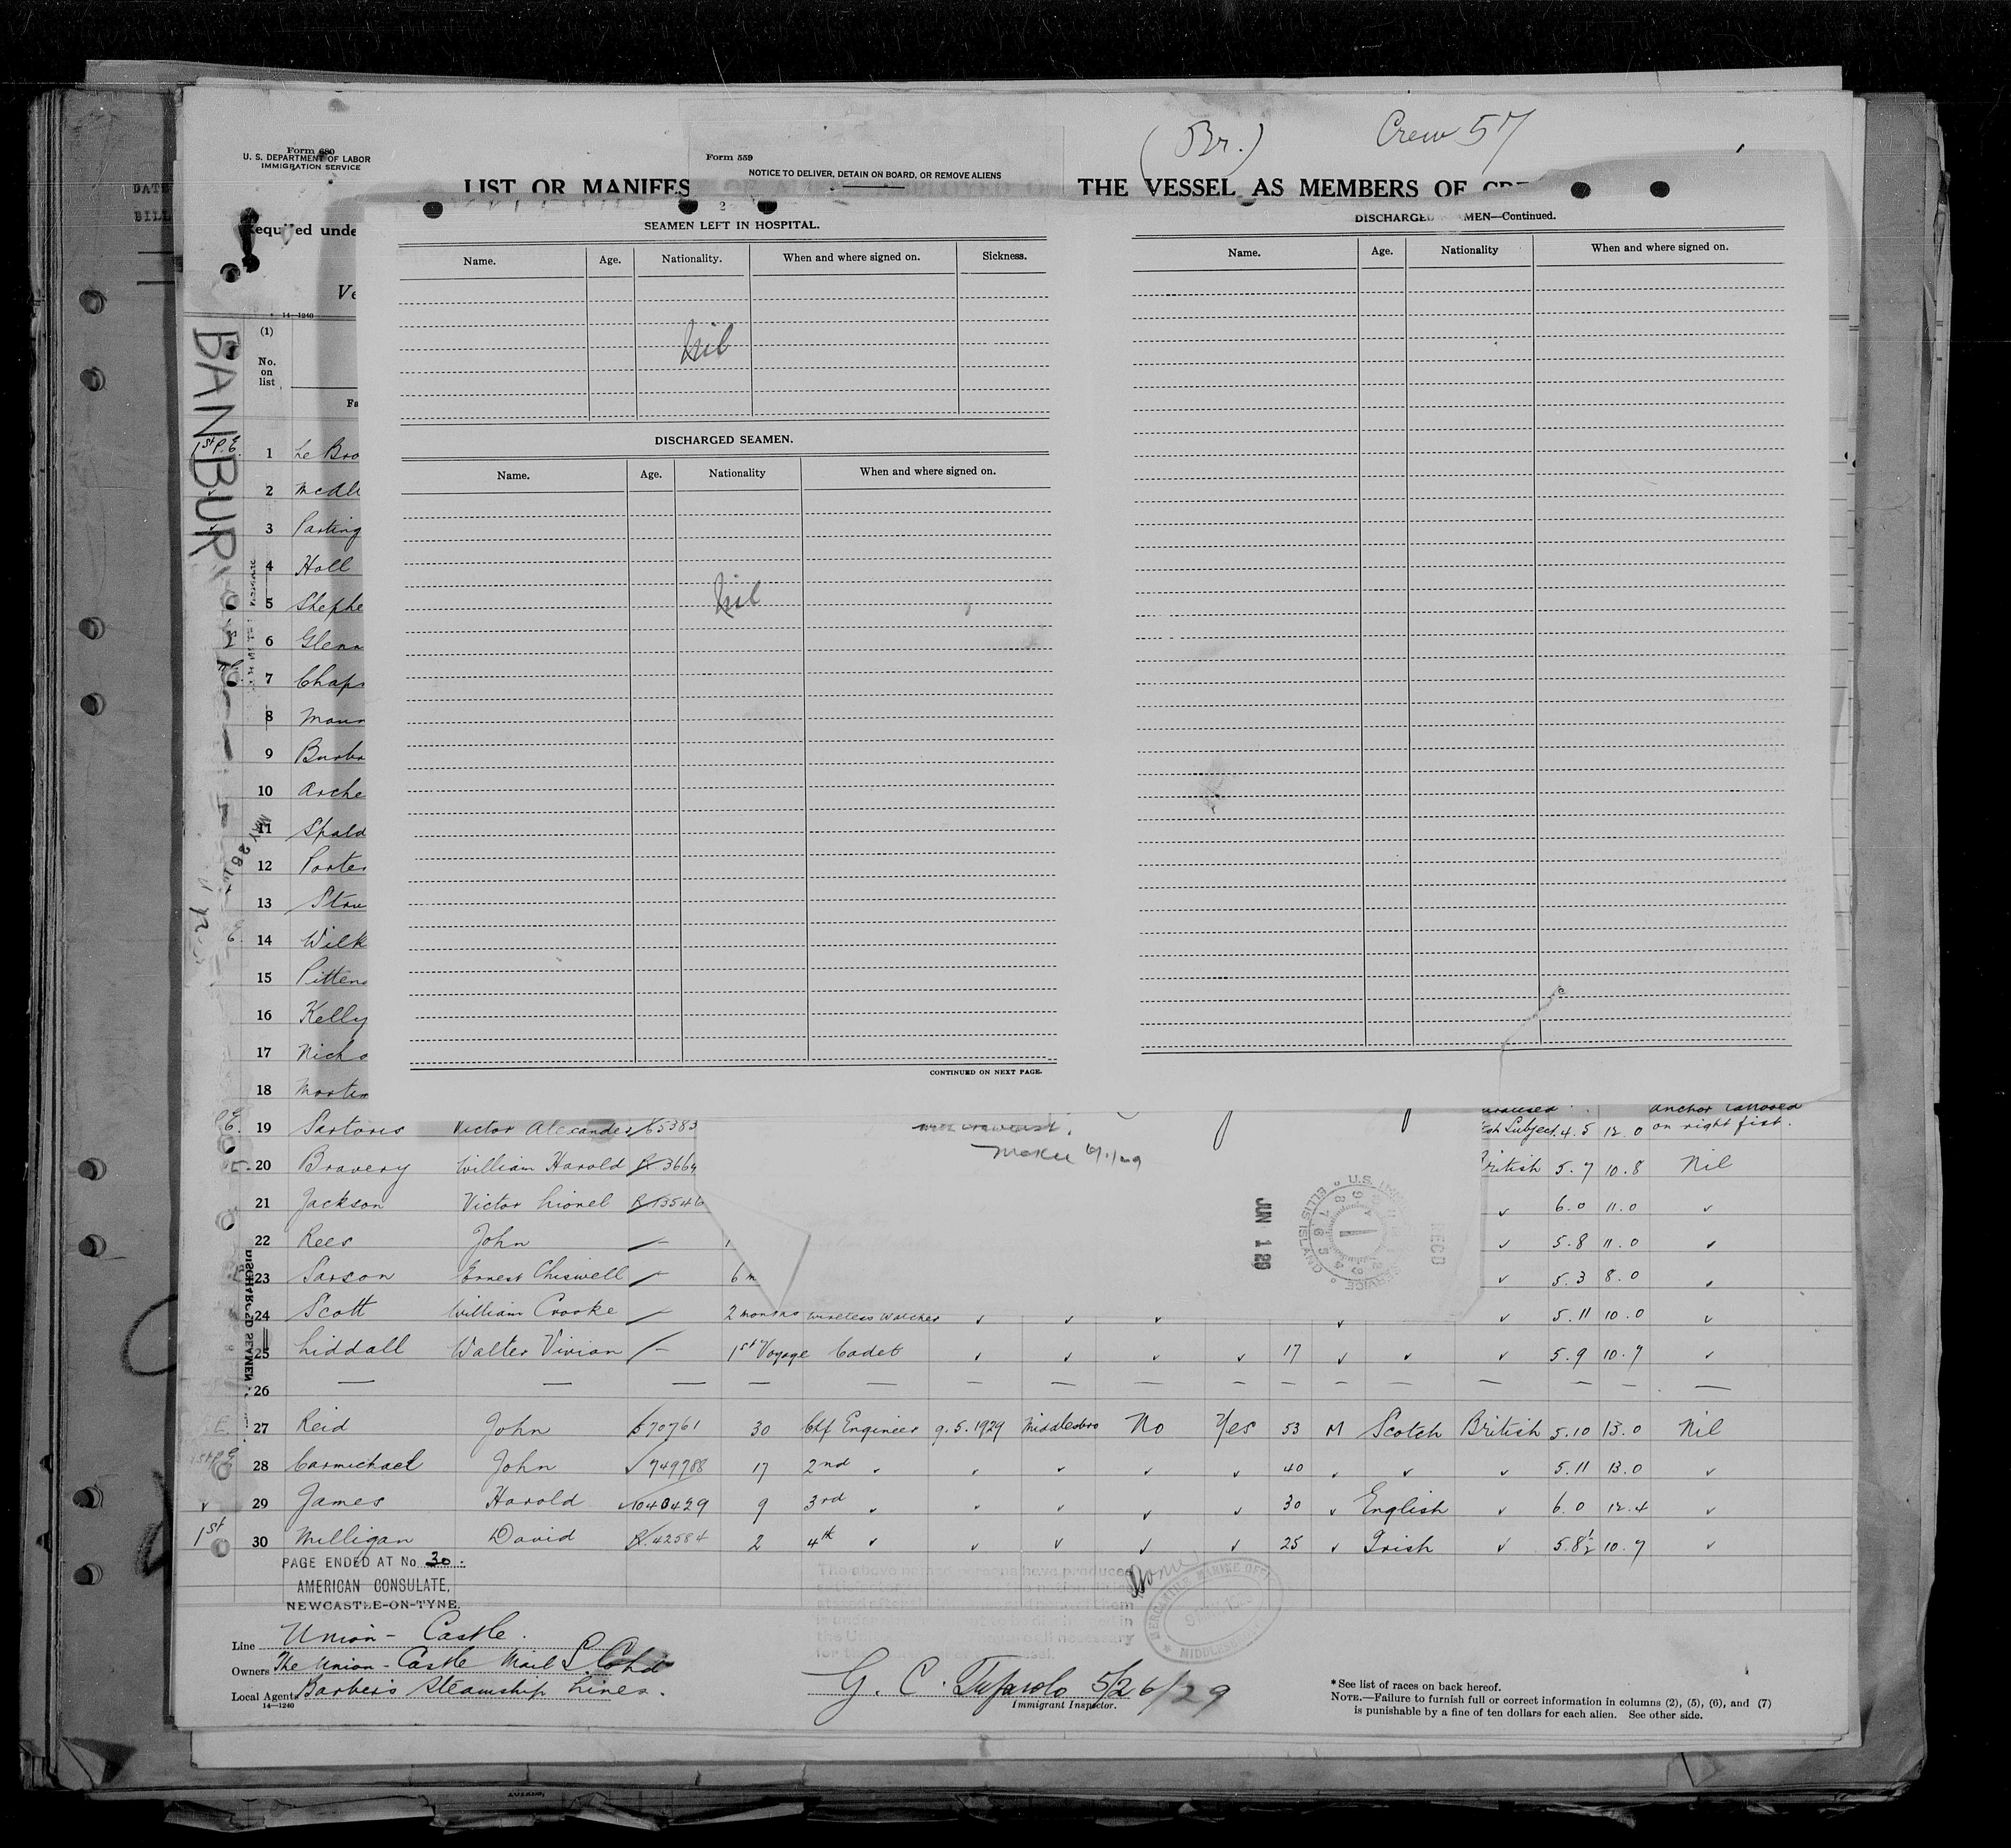 (Br.) Crew 57
Form 680
U. S. DEPARTMENT OF LABOR
IMMIGRATION SERVICE
Form 559
NOTICE TO DELIVER, DETAIN ON BOARD, OR REMOVE ALIENS
LIST OR MANIFES
THE VESSEL AS MEMBERS OF
2
SEAMEN LEFT IN HOSPITAL.
Name. Age. Nationality. When and where signed on. Sickness.
Nil
DISCHARGED SEAMEN.
Name. Age. Nationality When and where signed on.
Nil
CONTINUED ON NEXT PAGE.
DISCHARGED MEN—Continued.
Name. Age. Nationality When and where signed on.
14—1240
(1)
No.
on
list
BANBUR
1st P.E. 1 Le Bro
2 McAl
3 Parting
4 Holl
5 Shephe
6 Glenn
7 Chap
8 Mann
9 Burb
10 Arche
11 Spald
12 Porter
13 Stru
14 Wilk
15 Pitten
16 Kelly
17 Nicho
18 Morti
anchor tattooed
19 Sartoris Victor Alexander 65383 Subject. 4.5 12.0 on right fist.
20 Bravery William Harold R 3664 British 5.7 10.8 Nil
21 Jackson Victor Lionel R 13546 ✓ 6.0 11.0 ✓
22 Rees John — ✓ 5.8 11.0 ✓
23 Sarson Ernest Chiswell — 6 m ✓ 5.3 8.0 ✓
24 Scott William Crooke — 2 months Wireless Watcher ✓ ✓ ✓ ✓ ✓ 5.11 10.0 ✓
25 Liddall Walter Vivian — 1st Voyage Cadet ✓ ✓ ✓ ✓ 17 ✓ ✓ ✓ 5.9 10.7 ✓
26 — — — — — — — — — — — — — — — —
27 Reid John 570761 30 Chf Engineer 9.5.1929 Middlesbro No Yes 53 M Scotch British 5.10 13.0 Nil
28 Carmichael John 749788 17 2nd ✓ ✓ ✓ ✓ ✓ 40 ✓ ✓ ✓ 5.11 13.0 ✓
29 James Harold 1040429 9 3rd ✓ ✓ ✓ ✓ ✓ 30 ✓ English ✓ 6.0 12.4 ✓
1st 30 Milligan David R.42584 2 4th ✓ ✓ ✓ ✓ ✓ 25 ✓ Irish ✓ 5.8½ 10.7 ✓
JUN 1 29
PAGE ENDED AT No. 30.
AMERICAN CONSULATE,
NEWCASTLE-ON-TYNE.
Line Union - Castle.
Owners The Union - Castle Mail S.S. Co Ltd
Local Agents Barber's Steamship Lines.
14—1240
5/26/29
Immigrant Inspector.
*See list of races on back hereof.
NOTE.—Failure to furnish full or correct information in columns (2), (5), (6), and (7)
is punishable by a fine of ten dollars for each alien. See other side.